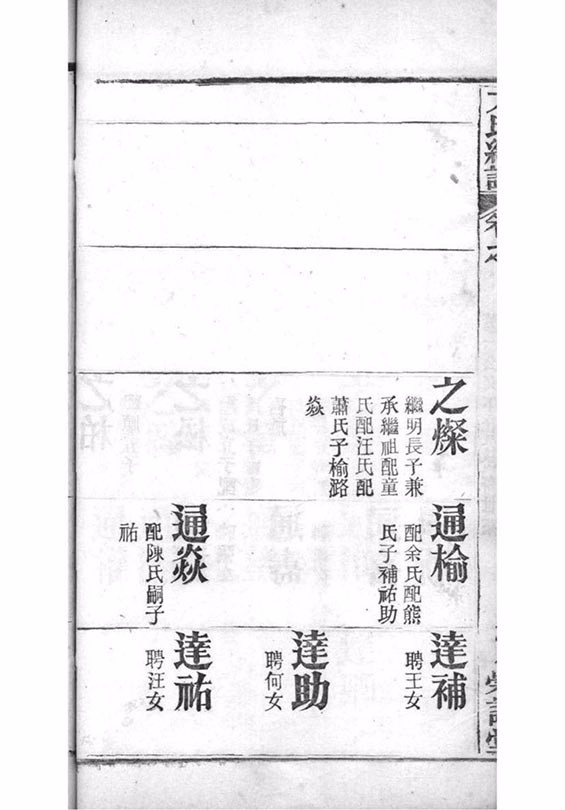 之燦
繼明長子兼
承繼祖配童
氏配汪氏配
蕭氏子榆潞
焱
通榆
配余氏配熊
氏子補祐助
通焱
配陳氏嗣子
祐
達補
聘王女
達助
聘何女
達祐
聘汪女